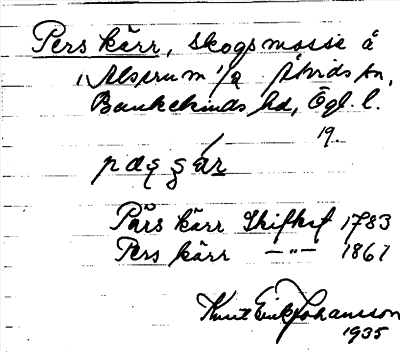 Pers kärr, skogsmosse å
Alserum 1/4 Åtvids sn,
Bankekinds hd, Ögl. l.
19.
Pärs kärr Skifteskf 1783
Pers kärr —"— 1861
Knut Erik Johansson
1935